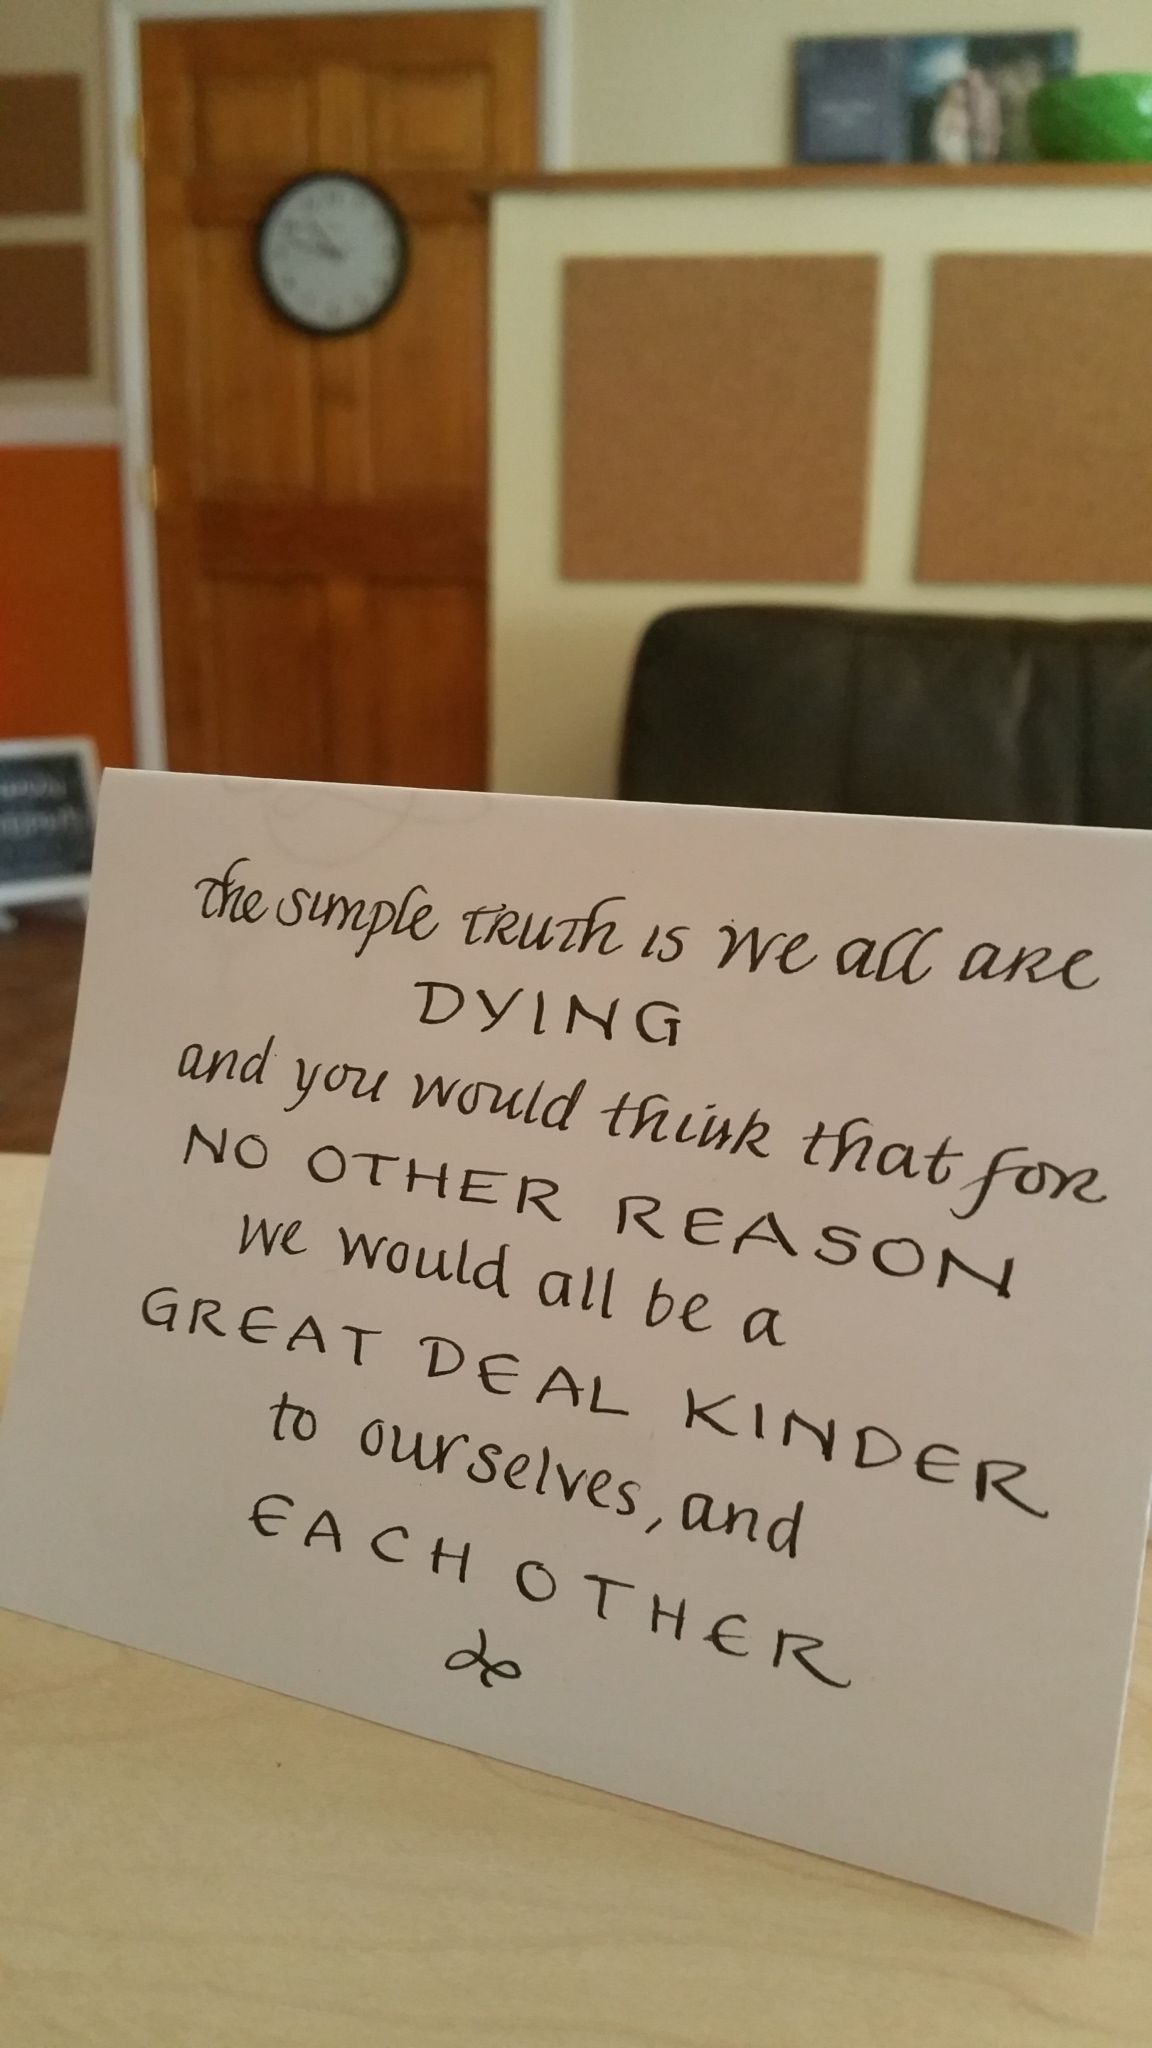 the simple TRUTH is we all are
DYING
and you would think that for
NO OTHER REASON
we would all be a
GREAT DEAL KINDER
to ourselves, and
EACH OTHER